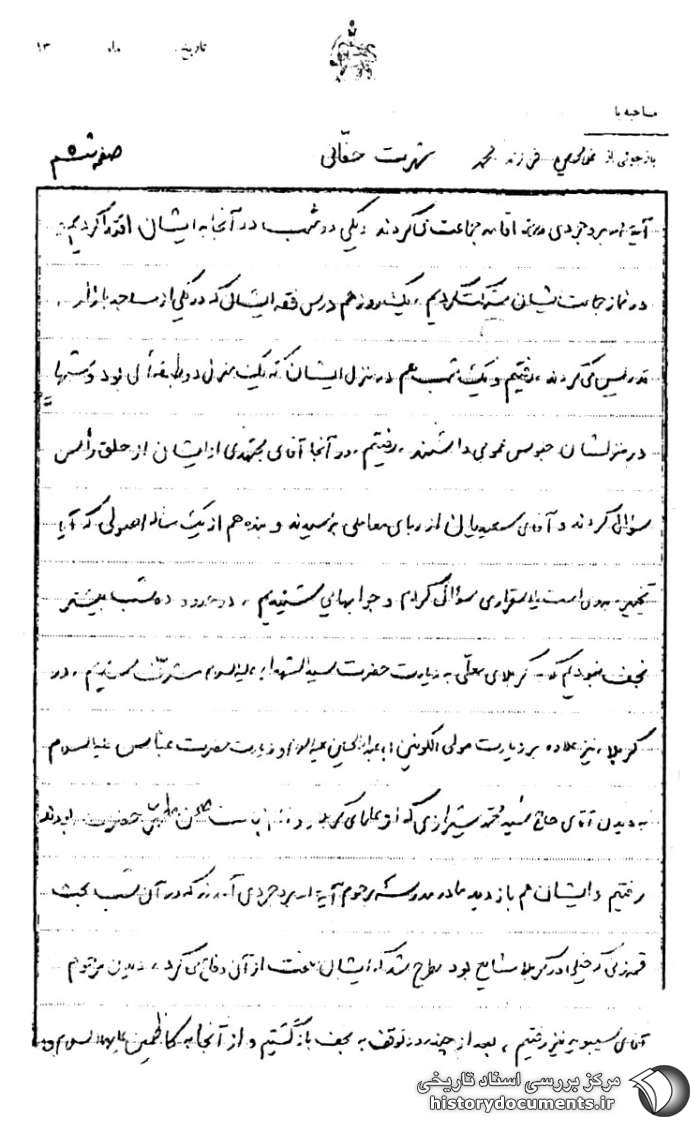 تاریخ ماه ۱۳
مصاحبه با
بازجوئی از غلامحسین فرزند محمد شهرت حقانی صفحه ششم
آیة اله بروجردی اقامه جماعت می‌کردند و یکی دو شب در آنجا به ایشان اقتدا کردیم و
در نماز جماعت ایشان شرکت کردیم، یک روز هم درس فقه ایشان که در یکی از مساجد بازار
تدریس می‌کردند، رفتیم و یک شب هم در منزل ایشان که یک منزل دو طبقه‌ای بود و شبها
در منزلشان جلوس عمومی داشتند، رفتیم و در آنجا آقای مجتهدی از ایشان از حلق رأس
سؤال کردند و آقای سعیدیان از ربای معاملی پرسیدند و بنده هم از یک مسأله اصولی که آیا
تخییر بدوی است یا استمراری سؤال کردم و جوابهایی شنیدیم، در حدود ده شب بیشتر
نجف نبودیم که به کربلای معلّی به زیارت حضرت سید الشهداء علیه السلام مشرّف شدیم، در
کربلا، نیز علاوه بر زیارت مولی الکونین ابا عبدالله الحسین علیه السلام و زیارت حضرت عباس علیه السلام
به دیدن آقای حاج سید محمد شیرازی که از علمای کربلا و امام جماعت صحن مطهر حضرت بودند
رفتیم و ایشان هم بازدید ما در مدرسه مرحوم آیة اله بروجردی آمدند که در آن شب بحث
قمه‌زنی که خیلی در کربلا شایع بود مطرح شد که ایشان سخت از آن دفاع می‌کرد، دیدن مرحوم
آقای سیبویه نیز رفتیم، بعد از چند روز توقف به نجف بازگشتیم و از آنجا به کاظمین علیهما السلام و
مرکز بررسی اسناد تاریخی
historydocuments.ir